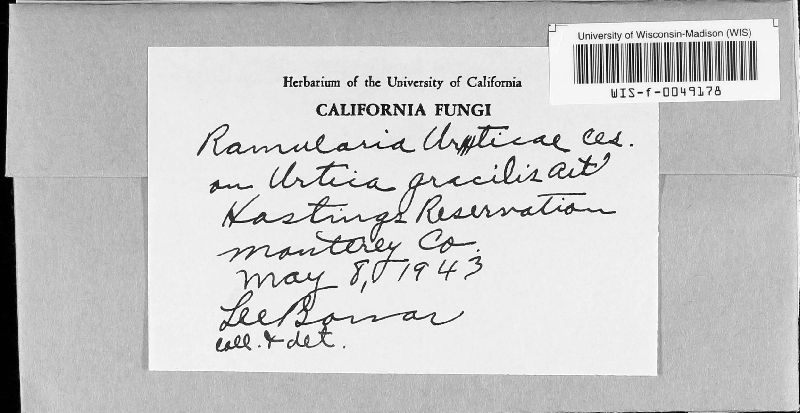 University of Wisconsin-Madison (WIS)
WIS-f-0049178
Herbarium of the University of California
CALIFORNIA FUNGI
Ramularia Urticae Ces.
on Urtica gracilis Ait
Hastings Reservation
Monterey Co.
May 8, 1943
Lee Bonar
coll. & det.